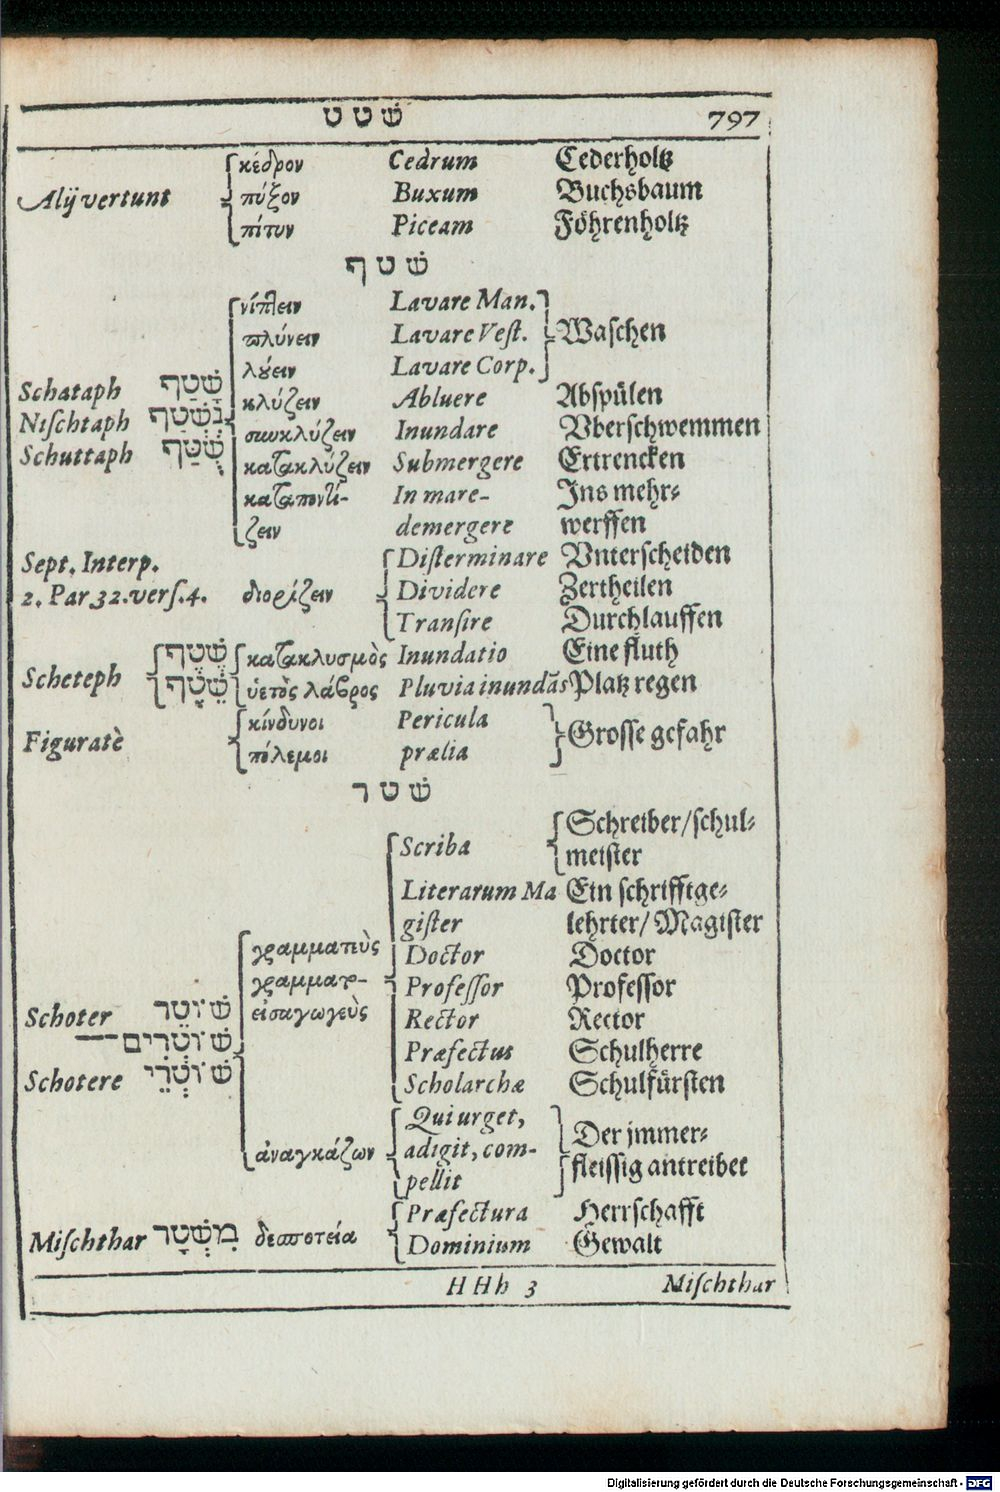 שׁ ט ט 797
Alij vertunt κέδρον Cedrum Cederholtz
πύξον Buxum Buchsbaum
πίτυν Piceam Föhrenholtz
שׁ ט ף
νίπτειν Lavare Man.
πλύνειν Lavare Veſt. Waſchen
λούειν Lavare Corp.
Schataph שָׁטַף κλύζειν Abluere Abſpülen
Niſchtaph נִשְׁטַף συγκλύζειν Inundare Vberſchwemmen
Schuttaph שֻׁטַּף κατακλύζειν Submergere Ertrencken
καταποντί- In mare- Jns mehr⸗
ζειν demergere werffen
Sept. Interp. Diſterminare Vnterſcheiden
2. Par 32. verſ. 4. διορίζειν Dividere Zertheilen
Tranſire Durchlauffen
Scheteph שֶׁטֶף κατακλυσμὸς Inundatio Eine fluth
שֵׁטֶף ὑετὸς λάβρος Pluvia inundãs Platz regen
Figuratè κίνδυνοι Pericula Groſſe gefahr
πόλεμοι prælia
שׁ ט ר
Scriba Schreiber/ ſchul⸗
meiſter
Literarum Ma Ein ſchrifftge⸗
giſter lehrter/ Magiſter
γραμματεὺς Doctor Doctor
γραμματο- Profeſſor Profeſſor
Schoter שׁוֹטֵר εισαγωγεὺς Rector Rector
שׁוֹטְרִים Præfectus Schulherre
Schotere שׁוֹטְרֵי Scholarchæ Schulfürſten
Qui urget, Der jmmer⸗
ἀναγκάζων adigit, com- fleiſſig antreibet
pellit
Præfectura Herrſchafft
Miſchthar מִשְׁטָר δεσποτεία Dominium Gewalt
HHh 3 Miſchthar
Digitalisierung gefördert durch die Deutsche Forschungsgemeinschaft - DFG